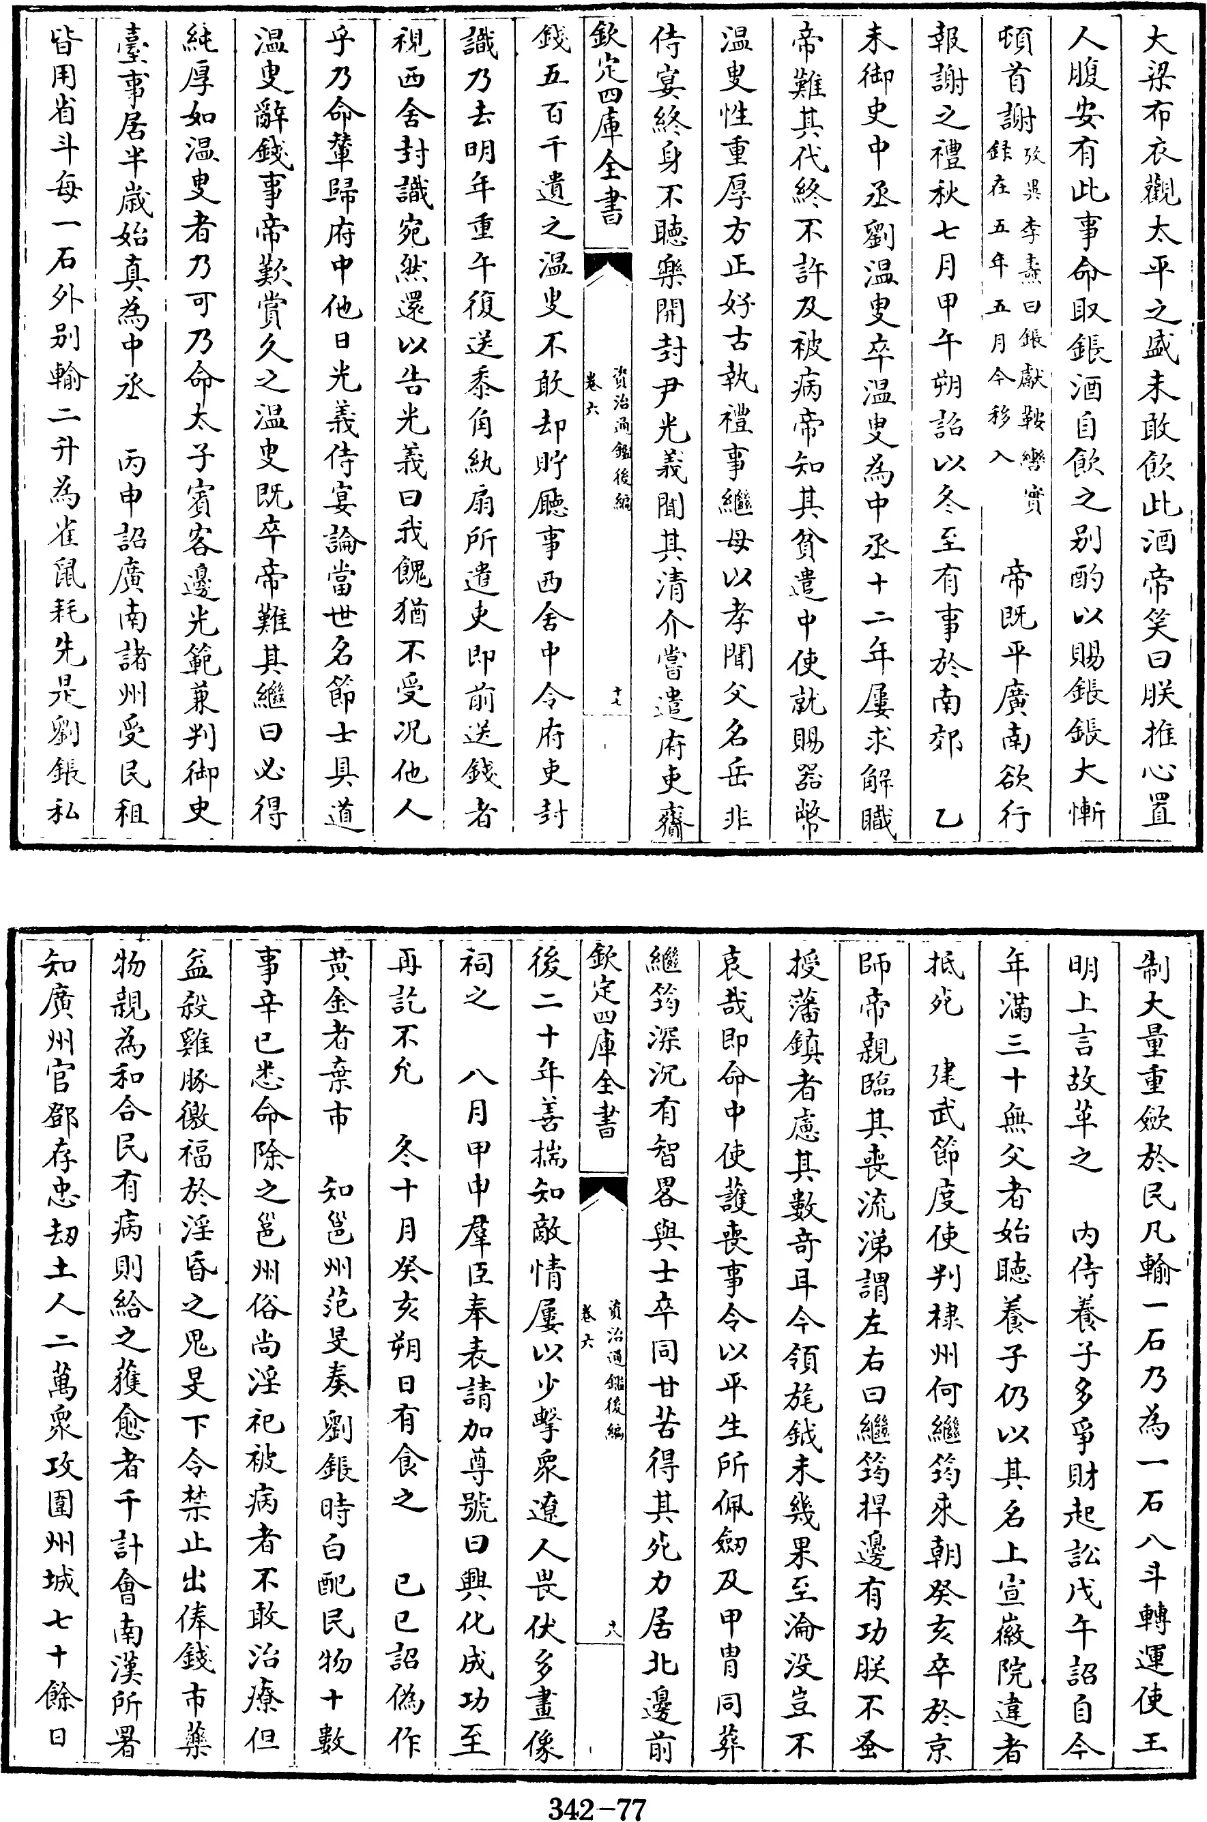 大梁布衣觀太平之盛未敢飲此酒帝笑曰朕推心置
人腹安有此事命取鋹酒自飲之别酌以賜鋹鋹大慚
頓首謝攷異李燾曰鋹獻鞍轡實錄在五年五月今移入 帝既平廣南欲行
報謝之禮秋七月甲午朔詔以冬至有事於南郊 乙
未御史中丞劉溫叟卒溫叟為中丞十二年屢求解職
帝難其代終不許及被病帝知其貧遣中使就賜器幣
溫叟性重厚方正好古執禮事繼母以孝聞父名岳非
侍宴終身不聽樂開封尹光義聞其清介嘗遣府吏齎
欽定四庫全書
資治通鑑後編
卷六
十七
錢五百千遺之溫叟不敢却貯廳事西舍中令府吏封
識乃去明年重午復送黍角紈扇所遣吏即前送錢者
視西舍封識宛然還以告光義曰我餽猶不受况他人
乎乃命輦歸府中他日光義侍宴論當世名節士具道
溫叟辭錢事帝歎賞久之溫叟既卒帝難其繼曰必得
純厚如溫叟者乃可乃命太子賓客邊光範兼判御史
臺事居半歲始真為中丞 丙申詔廣南諸州受民租
皆用省斗每一石外别輸二升為雀鼠耗先是劉鋹私
制大量重斂於民凡輸一石乃為一石八斗轉運使王
明上言故革之 内侍養子多爭財起訟戊午詔自今
年滿三十無父者始聽養子仍以其名上宣徽院違者
抵死 建武節度使判棣州何繼筠來朝癸亥卒於京
師帝親臨其喪流涕謂左右曰繼筠捍邊有功朕不蚤
授藩鎮者慮其數奇耳今領旄鉞未幾果至淪没豈不
哀哉即命中使護喪事令以平生所佩劒及甲冑同葬
繼筠深沉有智畧與士卒同甘苦得其死力居北邊前
欽定四庫全書
資治通鑑後編
卷六
十八
後二十年善揣知敵情屢以少擊衆遼人畏伏多畫像
祠之 八月甲申羣臣奉表請加尊號曰興化成功至
再訖不允 冬十月癸亥朔日有食之 己巳詔偽作
黄金者棄市 知邕州范旻奏劉鋹時白配民物十數
事辛巳悉命除之邕州俗尚淫祀被病者不敢治療但
益殺雞豚徼福於淫昏之鬼旻下令禁止出俸錢市藥
物親為和合民有病則給之獲愈者千計會南漢所署
知廣州官鄧存忠刼土人二萬衆攻圍州城七十餘日
342-77